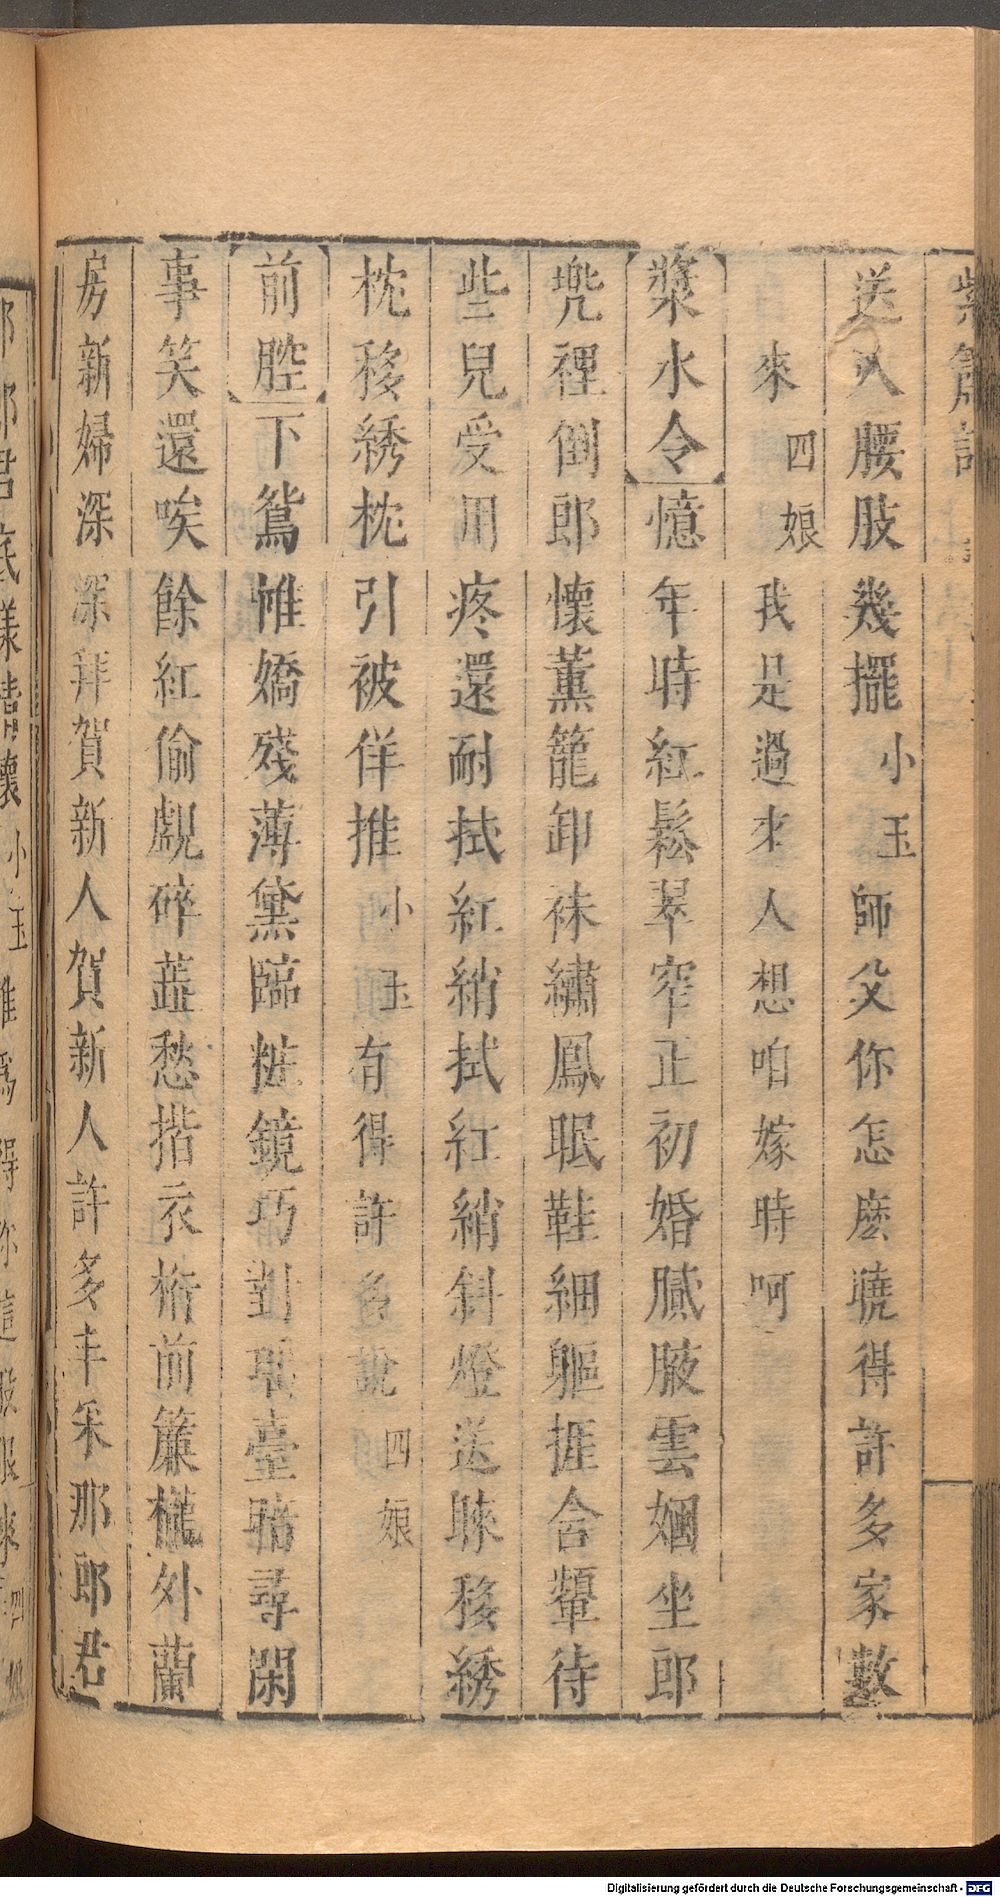 紫簫記
送入腰肢幾擺 小玉 師父你怎麽曉得許多家數
來 四娘 我是過來人想咱嫁時呵
漿水令 憶年時紅鬆翠窄正初婚膩腋雲姻坐郎
兠裡倒郎懷薰籠卸袜繡鳳眠鞋細軀捱含顰待
些兒受用疼還耐拭紅綃拭紅綃斜燈送睞移綉
枕移綉枕引被佯推 小玉 有得許多說 四娘
前腔 下鴛帷嬌殘薄黛臨粧鏡巧對臺暗尋閑
事笑還唉餘紅偷覷碎蕋愁揩衣桁前簾櫳外蘭
房新婦深深拜賀新人賀新人許多丰采那郎君
郎君底樣 懷 小玉 爲得你這
Digitalisierung gefördert durch die Deutsche Forschungsgemeinschaft - DFG